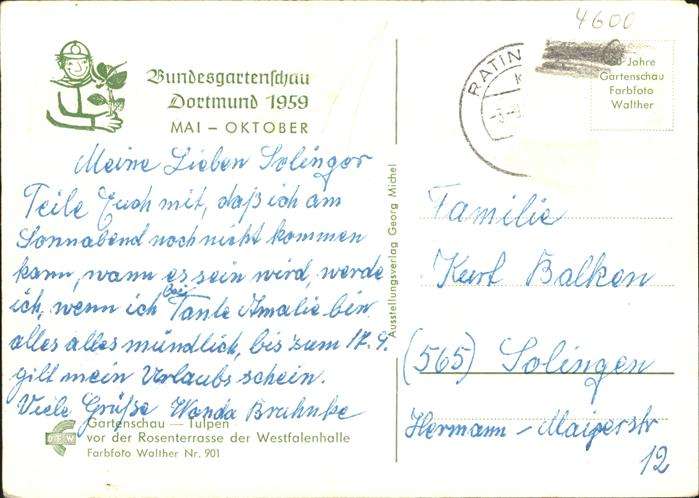 4600
Bundesgartenschau
Dortmund 1959
MAI – OKTOBER
RATIN
Jahre
Gartenschau
Farbfoto
Walther
Meine Lieben Solinger
Teile Euch mit, daß ich am
Sonnabend noch nicht kommen
kann, wann es sein wird, werde
ich, wenn ich bei Tante Amalie bin
alles alles mündlich, bis zum 17. 9.
gilt mein Urlaubsschein.
Viele Grüße Wanda Brahnke
Gartenschau — Tulpen
vor der Rosenterrasse der Westfalenhalle
Farbfoto Walther Nr. 901
Ausstellungsverlag Georg Michel
Familie
Kurt Balken
(565) Solingen
Hermann-Maigerstr
12